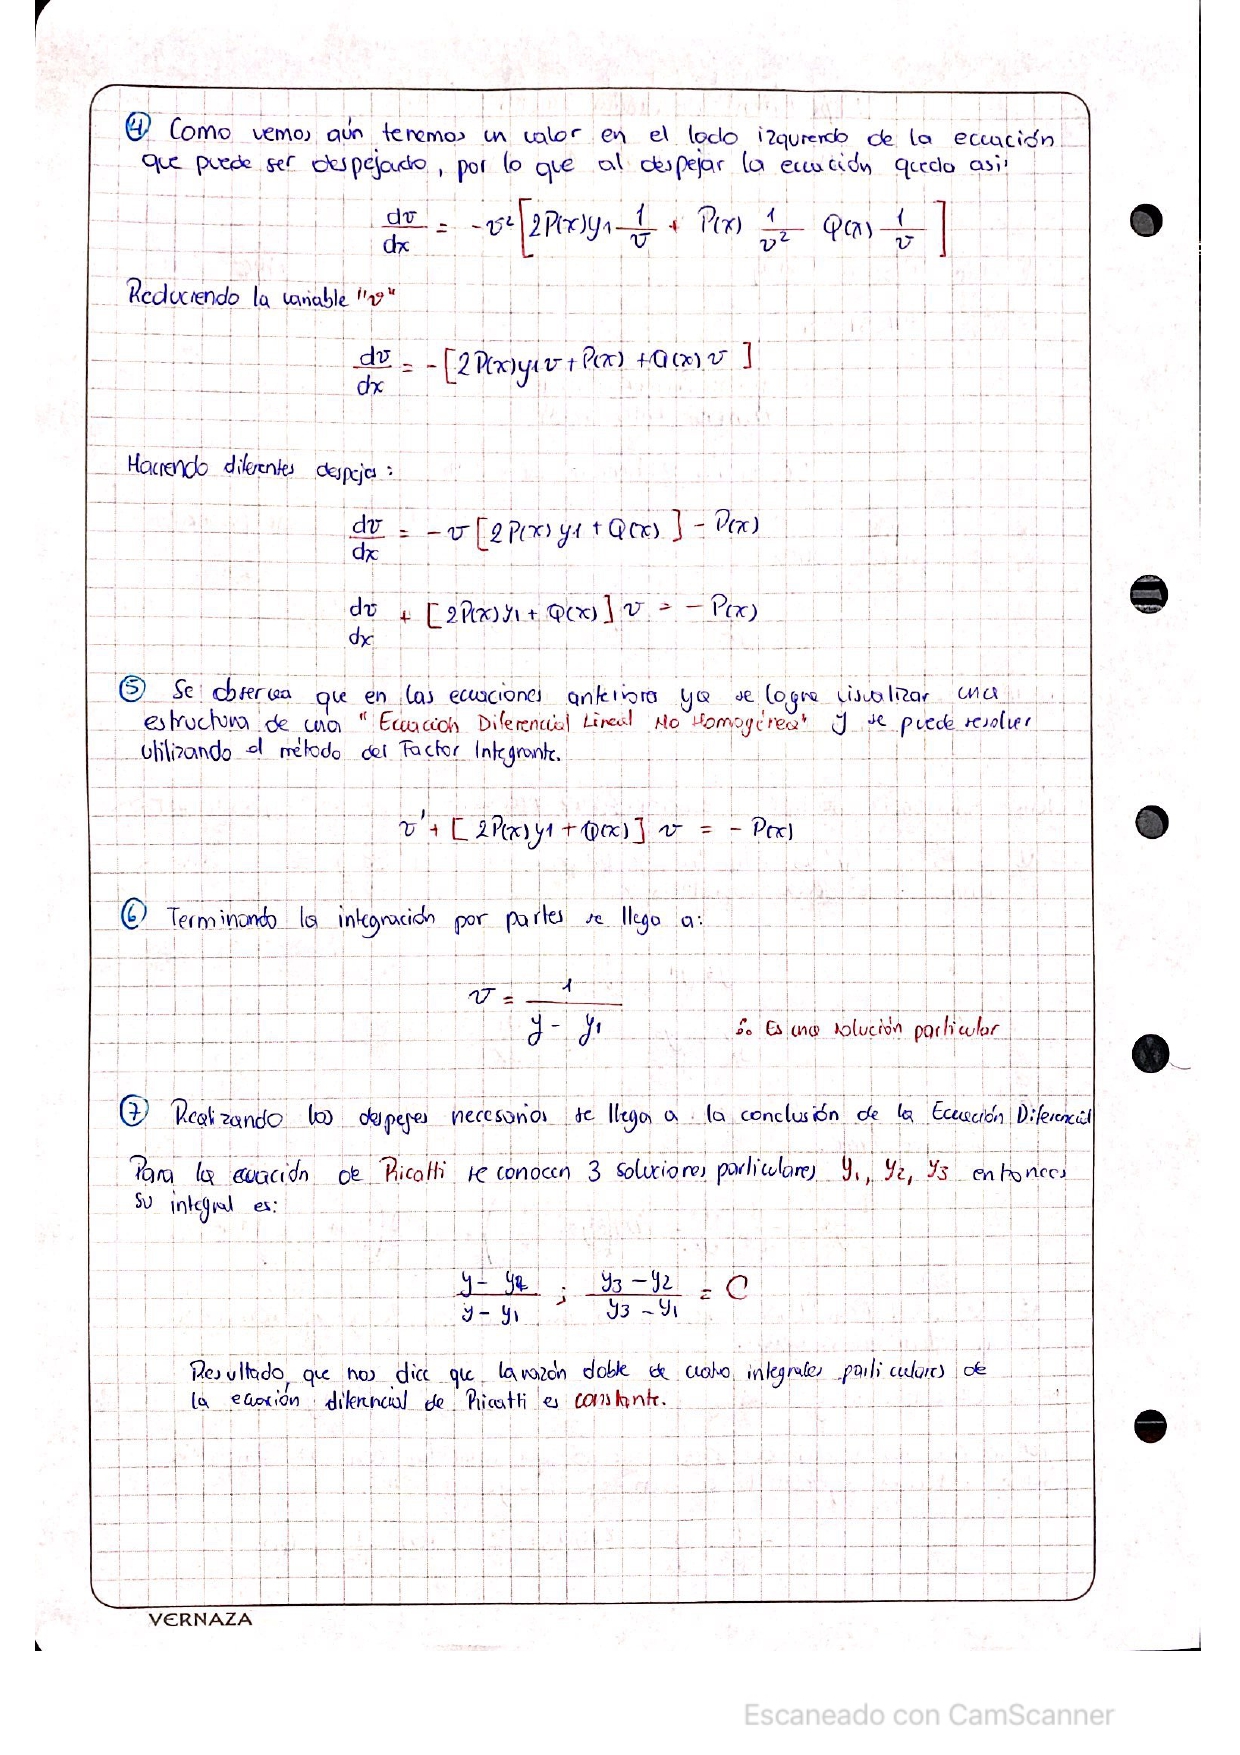 ④ Como vemos aún tenemos un valor en el lado izquierdo de la ecuación
que puede ser despejado, por lo que al despejar la ecuación queda así:
dv/dx = -v² [2P(x)y1 1/v + P(x) 1/v² Q(x) 1/v ]
Reduciendo la variable "v"
dv/dx = - [2P(x)y1v + P(x) + Q(x) v ]
Haciendo diferentes despejes:
dv/dx = - v [2P(x) y1 + Q(x) ] - P(x)
dv/dx + [2P(x)y1 + Q(x)] v = - P(x)
⑤ Se observa que en las ecuaciones anteriores ya se logra visualizar una
estructura de una "Ecuación Diferencial Lineal No Homogénea" y se puede resolver
utilizando el método del Factor Integrante.
v' + [ 2P(x)y1 + Q(x)] v = - P(x)
⑥ Terminando la integración por partes se llega a:
v = 1/(y - y1)
∴ Es una solución particular
⑦ Realizando los despejes necesarios se llega a la conclusión de la Ecuación Diferencial
Para la ecuación de Ricatti se conocen 3 soluciones particulares y1, y2, y3 entonces
su integral es:
(y - y2)/(y - y1) ; (y3 - y2)/(y3 - y1) = C
Resultado, que nos dice que la razón doble de cuatro integrales particulares de
la ecuación diferencial de Ricatti es constante.
VERNAZA
Escaneado con CamScanner